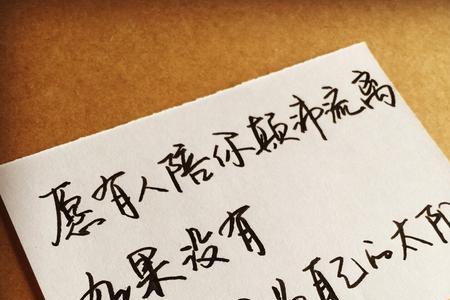 愿有人陪你颠沛流离
如果没有
为自己的太阳